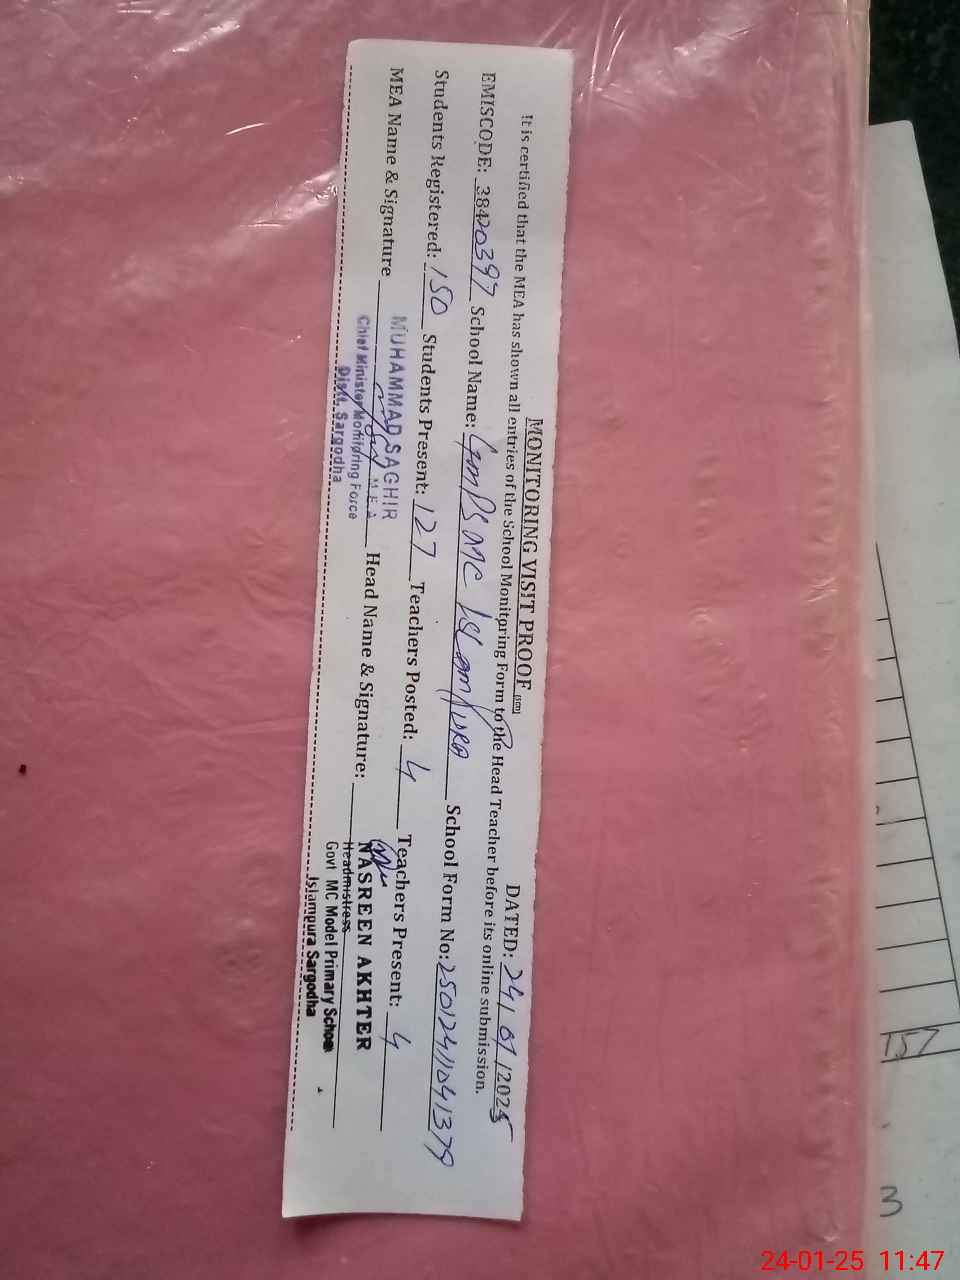 MONITORING VISIT PROOF (SED) DATED: 24/01/2025
It is certified that the MEA has shown all entries of the School Monitoring Form to the Head Teacher before its online submission.
EMISCODE: 38420397 School Name: GMPS MC Islampura School Form No: 25012411041379
Students Registered: 150 Students Present: 127 Teachers Posted: 4 Teachers Present: 4
MEA Name & Signature Head Name & Signature:
MUHAMMAD SAGHIR
M.E.A
Chief Minister Monitoring Force
Distt. Sargodha
NASREEN AKHTER
Headmistress
Govt MC Model Primary School
Islampura Sargodha
157
3
24-01-25 11:47